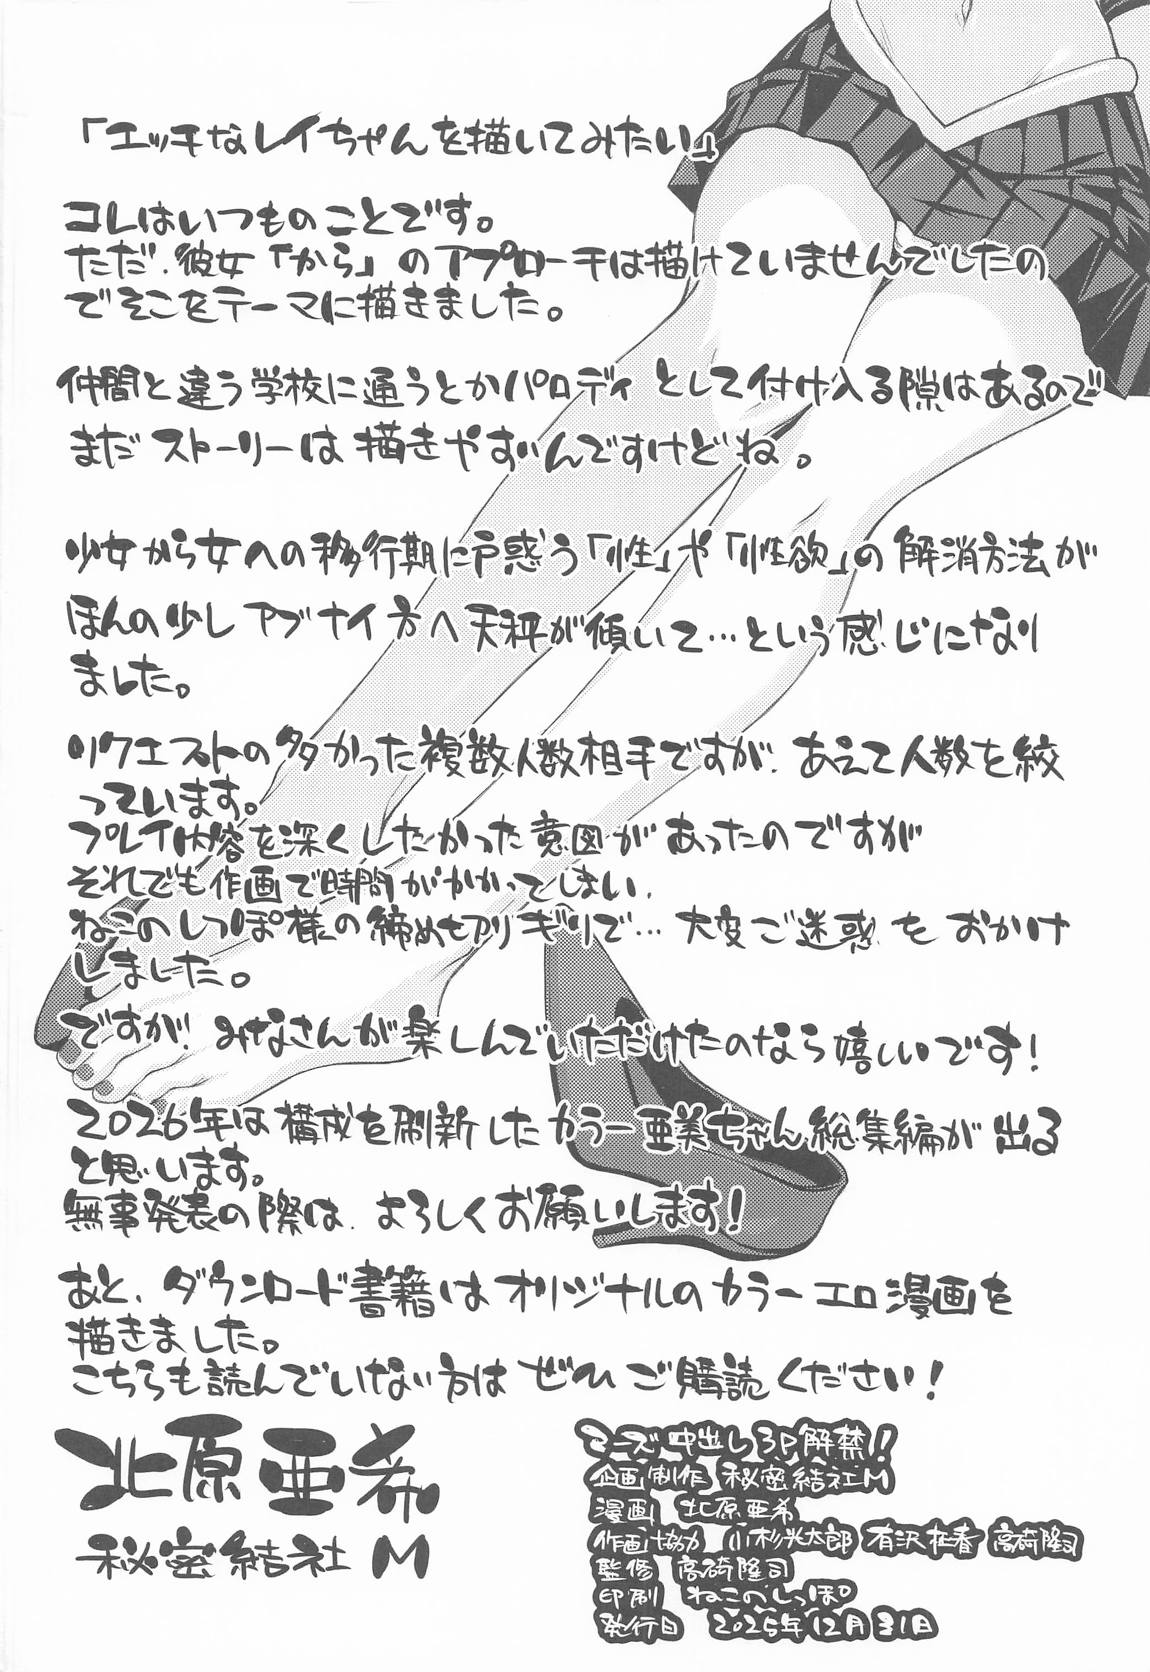 「エッチなレイちゃんを描いてみたい」
コレはいつものことです。
ただ、彼女「から」のアプローチは描けていませんでしたの
でそこをテーマに描きました。
仲間と違う学校に通うとかパロディとして付け入る隙はあるので
まだストーリーは描きやすいんですけどね。
少女から女への移行期に戸惑う「性」や「性欲」の解消方法が
ほんの少しアブナイ方へ天秤が傾いて…という感じになり
ました。
リクエストの多かった複数人数相手ですが、あえて人数を絞
っています。
プレイ内容を深くしたかった意図があったのですが
それでも作画で時間がかかってしまい、
ねこのしっぽ様の締め切りギリで…大変ご迷惑をおかけ
しました。
ですが!みなさんが楽しんでいただけたのなら嬉しいです!
2026年は構成を刷新したカラー亜美ちゃん総集編が出る
と思います。
無事発表の際は、よろしくお願いします!
あと、ダウンロード書籍はオリジナルのカラーエロ漫画を
描きました。
こちらも読んでいない方はぜひご購読ください!
北原亜希
秘密結社M
ミニズ中出し3P解禁!!
企画制作 秘密結社M
漫画 北原亜希
作画協力 小杉光太郎 有沢桂春 高碕隆司
監修 高碕隆司
印刷 ねこのしっぽ
発行日 2025年12月31日